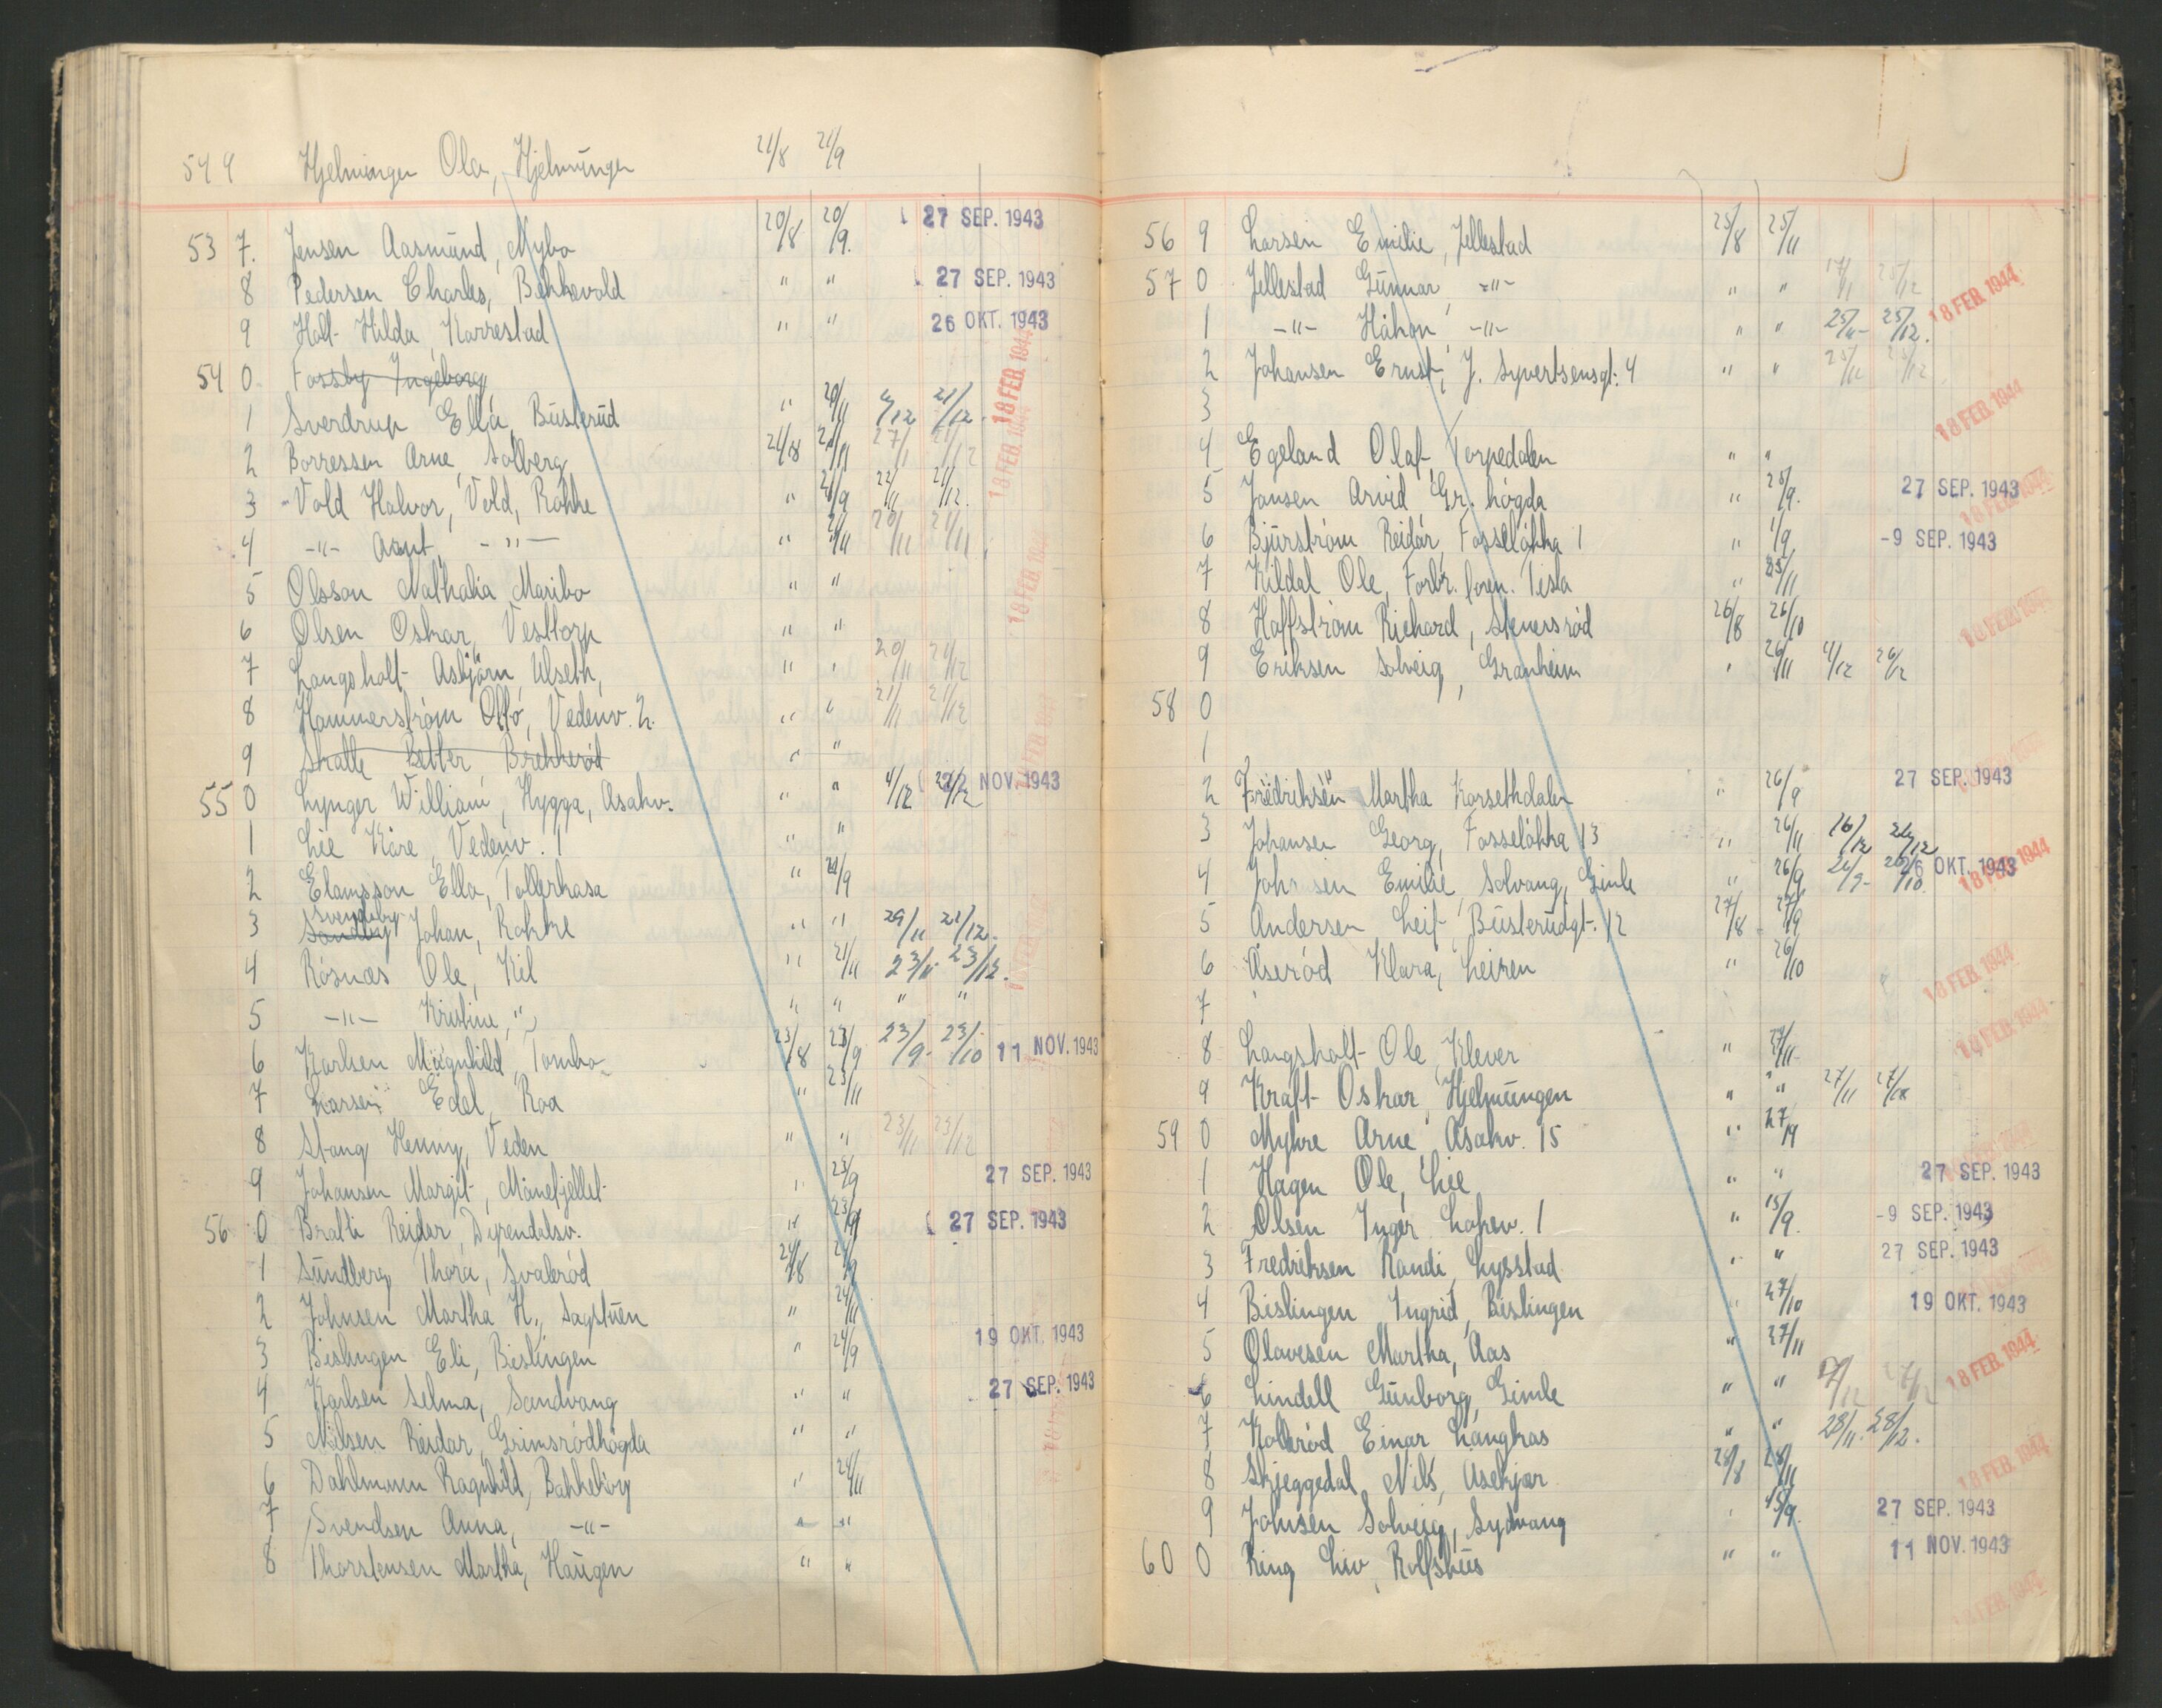 549 Hjelmungen Ola, Hjelmungen 21/8 21/9
53 7. Jensen Aasmund, Mybo 20/8 20/9. 27 SEP. 1943
8 Pedersen Charles, Bakkevold " " 27 SEP. 1943
9 Holt Hilda, Karrestad " " 26 OKT. 1943
54 0 Fossby Ingeborg
1 Sverdrup Ella, Busterud " 20/11 4/12 21/12 18 FEB. 1944
2 Borressen Arne, Solberg 21/8 21/11 27/11 21/12 18 FEB. 1944
3 Vold Halvor, Vold, Rokke " 21/9 22/11 21/12.
4 -"- Aant, -"- " 21/11 20/11 21/11
5 Olsson Nathalia Maribo " " 18 FEB. 1944
6 Olsen Oskar, Vesttorp " "
7 Langsholt Asbjörn, Ulseth, " " 20/11 21/12
8 Hammerström Otto, Vedenv. 2. " " 21/11 21/12
9 Skatte Better, Brekkeröd " "
55 0 Lynger William, Hygga, Asakv. " " 4/12 21/12 22 NOV. 1943
1 Lie Kåre, Vedenv. 1 " "
2 Elamsson Ella, Tollerkasa " 21/9
3 Sandby Svendsby Johan, Rokke " " 29/11 21/12.
4 Rösnæs Ole, Kil " 21/11 23/11 23/12.
5 -"- Kristine, " " " " "
6 Karlsen Magnhild, Tombo 23/8 23/9 23/9- 23/10 11 NOV. 1943
7 Larsen Edel, Roa " 23/11
8 Stang Henny, Veden " " 23/11 23/12
9 Johansen Margit, Månefjellet " 23/9 27 SEP. 1943
56 0 Bratli Reidar, Dyrendalsv. " 23/9 27 SEP. 1943
1 Sundberg Thora, Svaleröd 24/8 24/9
2 Johnsen Martha H., Sagstuen " 24/11
3 Bislingen Eli, Bislingen " 24/9 19 OKT. 1943
4 Karlsen Selma, Sandvang " " 27 SEP. 1943
5 Nilsen Reidar, Grimsrödhögda " "
6 Dahlmann Ragnhild, Bakkeborg " 24/11
7 Svendsen Anna, -"- " "
8 Thorstensen Martha, Haugen " "
56 9 Larsen Emilie, Jellestad 25/8 25/11
57 0 Jellestad Gunnar, -"- " " 17/11 25/12 18 FEB. 1944
1 -"- Håkon, -"- " " 25/11- 25/12.
2 Johansen Ernst, J. Syvertsensgt. 4 " " 25/11 25/12
3 18 FEB. 1944
4 Egeland Olaf, Torpedalen " "
5 Jansen Arvid, Gr. högda " 25/9. 27 SEP. 1943 18 FEB. 1944
6 Bjurström Reidar, Fosselökka 1 " 1/9 -9 SEP. 1943
7 Kildal Ole, Forbr. foren. Tista " 25/11
8 Haffström Richard, Stenersröd 26/8 26/10 18 FEB. 1944
9 Eriksen Solveig, Granheim " 26/11 4/12 26/12
58 0
1
2 Fredriksen Martha Korsethdalen " 26/9 27 SEP. 1943
3 Johansen Georg, Fosselökka 13 " 26/11 26/12 26/12
4 Johansen Emilie, Solvang, Gimle " 26/9 26/9- 26/10 26 OKT. 1943 18 FEB. 1944
5 Andersen Leif, Busterudgt. 12 27/8 27/9
6 Åseröd Klara, Leiren " 26/10 18 FEB. 1944
7
8 Langsholt Ole, Klever " 27/11 18 FEB. 1944
9 Kraft Oskar, Hjelmungen " " 27/11 27/12
59 0 Myhre Arne Asakv. 15 " 27/9
1 Hagen Ole, Lie " " 27 SEP. 1943
2 Olsen Inger Lokev. 1 " 15/9. -9 SEP. 1943
3 Fredriksen Randi, Lysstad " " 27 SEP. 1943
4 Bislingen Ingrid, Bislingen " 27/10 19 OKT. 1943
5 Olavesen Martha, Aas " 27/11
6 Lindell Gunborg, Gimle " " 27/12 27/12 18 FEB. 1944
7 Kolleröd Einar Langkas " " 28/11. 28/12.
8 Skjeggedal Nils, Asekjær 28/8 28/11 18 FEB. 1944
9 Johnsen Solveig, Sydvang " 15/9. 27 SEP. 1943
60 0 Ring Liv, Rolfshus " " 11 NOV. 1943
18 FEB. 1944